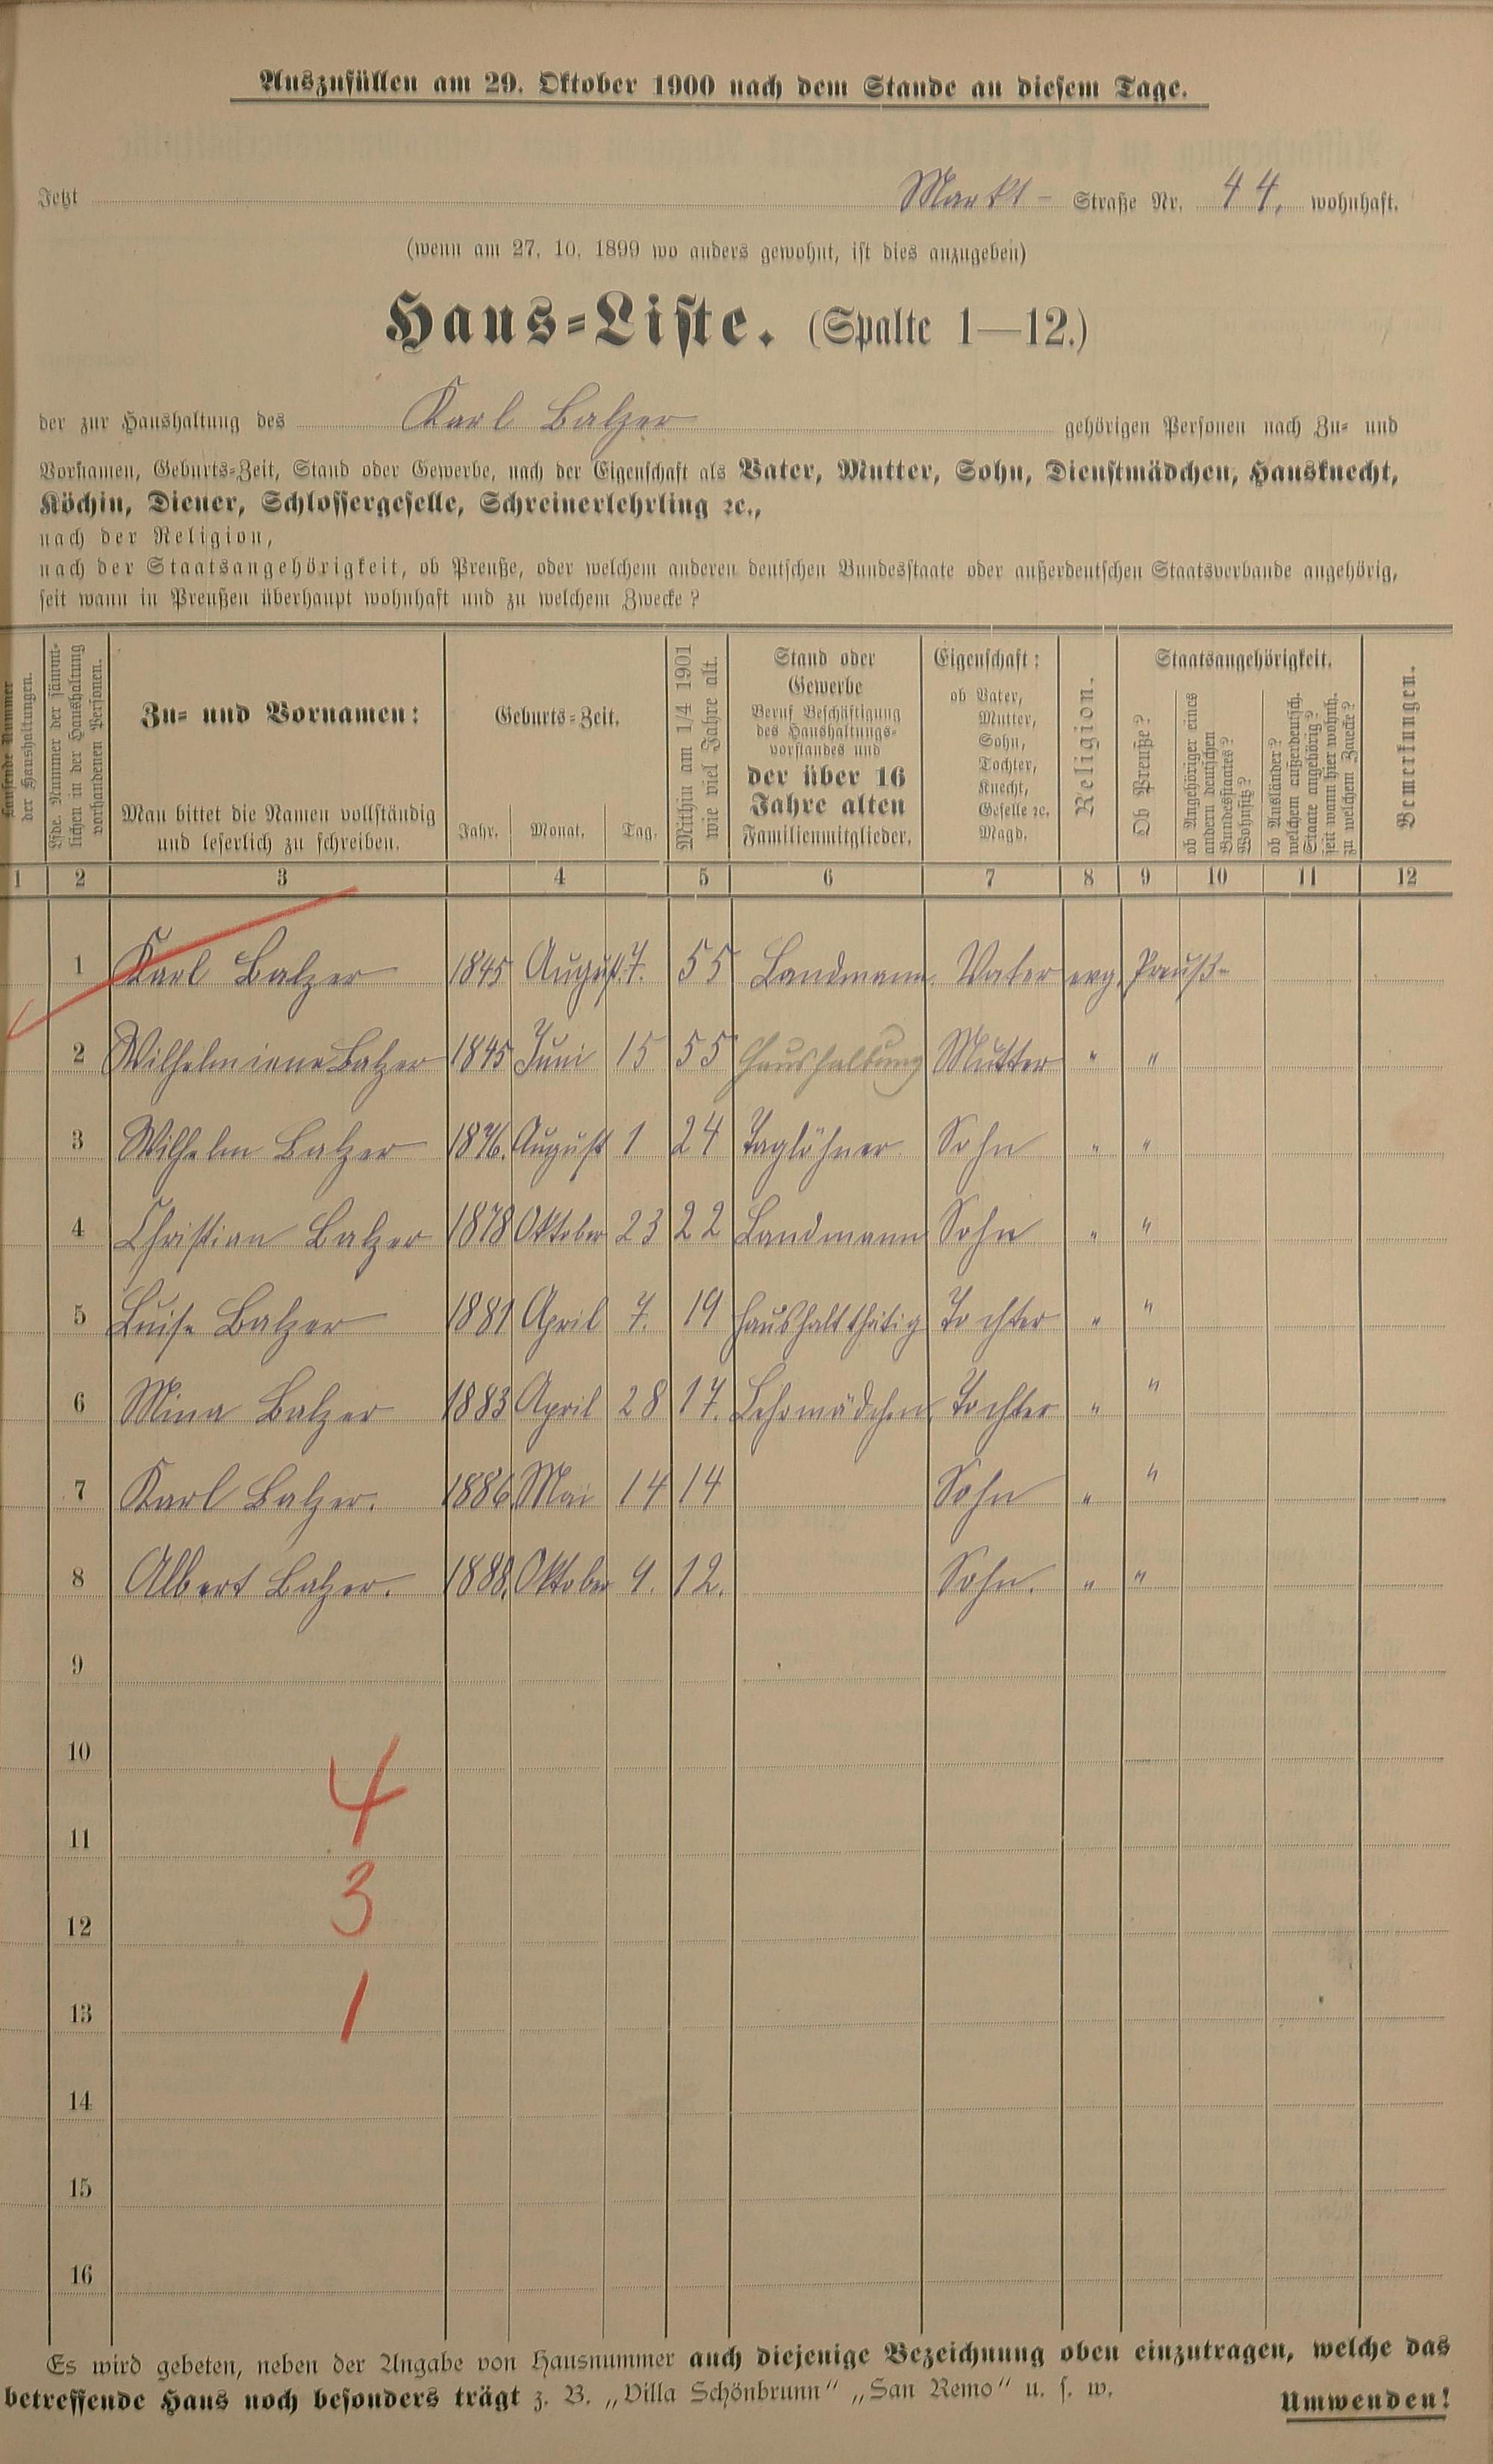 Auszufüllen am 29. Oktober 1900 nach dem Stande an diesem Tage.
Jetzt Markt- Straße Nr. 44. wohnhaft.
(wenn am 27. 10. 1899 wo anders gewohnt, ist dies anzugeben)
Haus-Liste. (Spalte 1—12.)
der zur Haushaltung des Karl Balzer gehörigen Personen nach Zu- und
Vornamen, Geburts-Zeit, Stand oder Gewerbe, nach der Eigenschaft als Vater, Mutter, Sohn, Dienstmädchen, Hausknecht,
Köchin, Diener, Schlossergeselle, Schreinerlehrling ꝛc.,
nach der Religion,
nach der Staatsangehörigkeit, ob Preuße, oder welchem anderen deutschen Bundesstaate oder außerdeutschen Staatsverbande angehörig,
seit wann in Preußen überhaupt wohnhaft und zu welchem Zwecke?
Laufende Nummer
der Haushaltungen.
Lfde. Nummer der sämmt-
lichen in der Haushaltung
vorhandenen Personen.
Zu- und Vornamen:
Man bittet die Namen vollständig
und leserlich zu schreiben.
Geburts-Zeit.
Jahr. Monat. Tag.
Mithin am 1/4 1901
wie viel Jahre alt.
Stand oder
Gewerbe
Beruf Beschäftigung
des Haushaltungs-
vorstandes und
der über 16
Jahre alten
Familienmitglieder.
Eigenschaft:
ob Vater,
Mutter,
Sohn,
Tochter,
Knecht,
Geselle ꝛc.
Magd.
Religion.
Staatsangehörigkeit.
Ob Preuße?
ob Angehöriger eines
andern deutschen
Bundesstaates?
Wohnsitz?
ob Ausländer?
welchem außerdeutsch.
Staate angehörig?
seit wann hier wohnh.
zu welchem Zwecke?
Bemerkungen.
1 2 3 4 5 6 7 8 9 10 11 12
1 Karl Balzer 1845 August 7. 55 Landmann. Vater evg. Preuß-
2 Wilhelmiene Balzer 1845 Juni 15 55 Haushaltung Mutter " "
3 Wilhelm Balzer 1876. August 1 24 Taglöhner Sohn " "
4 Christian Balzer 1878 Oktober 23 22 Landmann Sohn " "
5 Luise Balzer 1881 April 7. 19 Haushaltthätig Tochter " "
6 Mina Balzer 1883 April 28 17. Lehrmädchen Tochter " "
7 Karl Balzer. 1886. Mai 14 14 Sohn " "
8 Albert Balzer. 1888. Oktober 9. 12. Sohn. " "
9
10
4
11
3
12
1
13
14
15
16
Es wird gebeten, neben der Angabe von Hausnummer auch diejenige Bezeichnung oben einzutragen, welche das
betreffende Haus noch besonders trägt z. B. „Villa Schönbrunn" „San Remo" u. s. w. Umwenden!